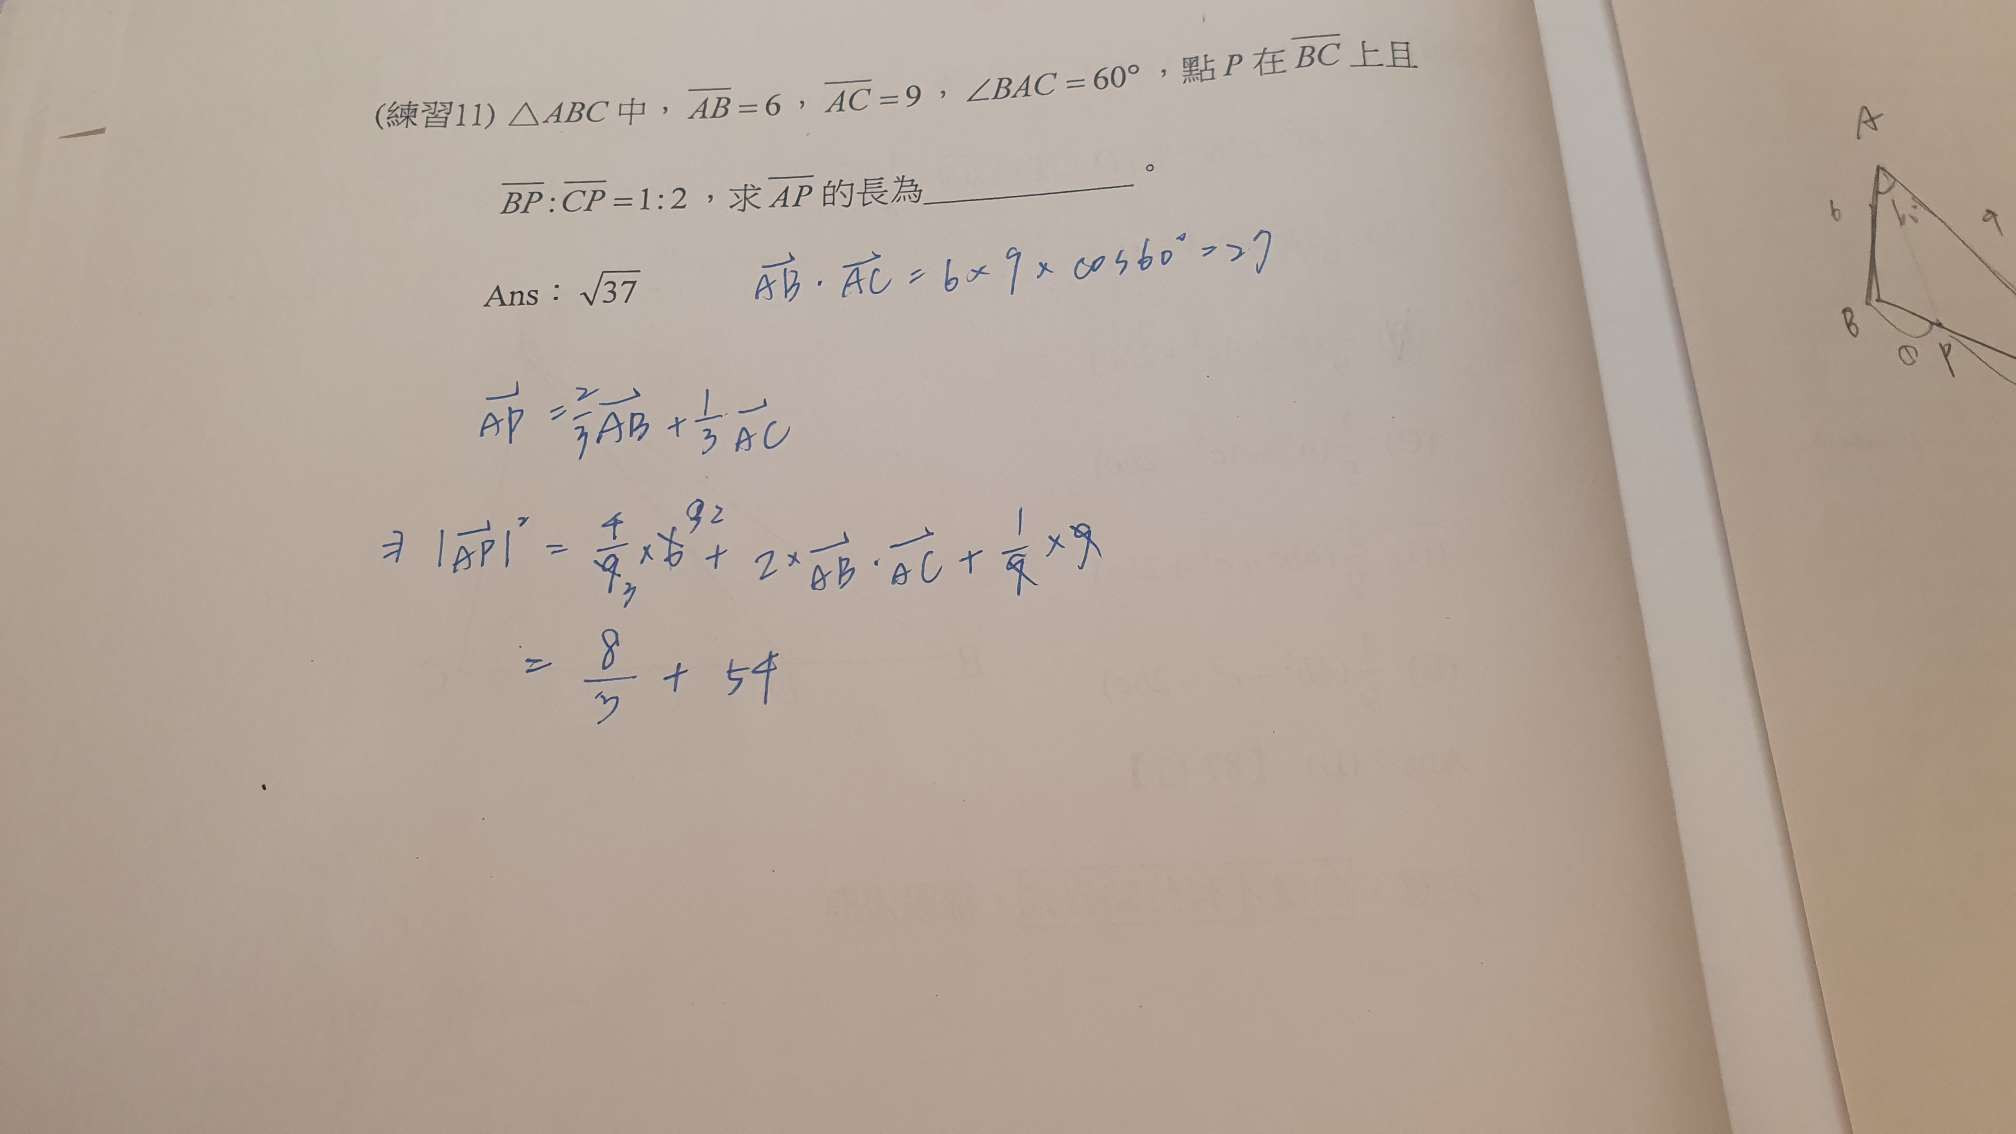 (練習11) △ABC 中，AB=6，AC=9，∠BAC=60°，點 P 在 BC 上且
BP:CP=1:2，求 AP 的長為 。
Ans：√37
AB · AC = 6 × 9 × cos60° = 27
AP = 2/3 AB + 1/3 AC
⇒ |AP|² = 4/9 × 6 + 2 × AB · AC + 1/9 × 9
3
= 8/3 + 54
A
6
9
B
① P